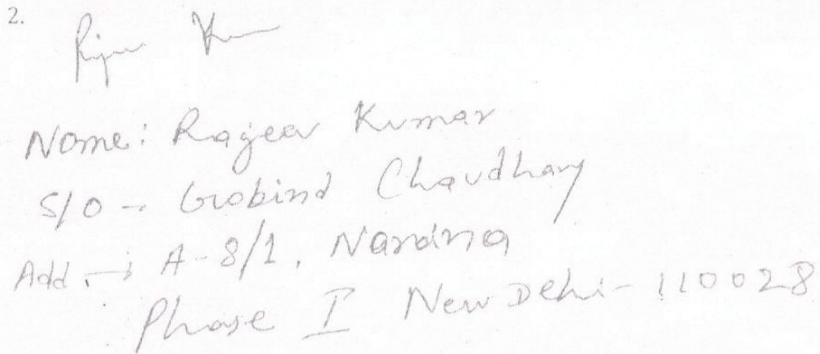 2.
Name: Rajeev Kumar
S/O - Gobind Chaudhary
Add. → A-8/1, Naraina
Phase I New Delhi - 110028